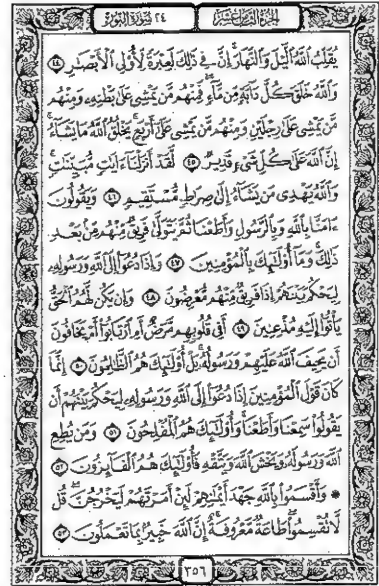 الجزء الثامن عشر ٢٤ سورة النور
يُقَلِّبُ ٱللَّهُ ٱلَّيۡلَ وَٱلنَّهَارَۚ إِنَّ فِي ذَٰلِكَ لَعِبۡرَةٗ لِّأُوْلِي ٱلۡأَبۡصَٰرِ ٤٤
وَٱللَّهُ خَلَقَ كُلَّ دَآبَّةٖ مِّن مَّآءٖۖ فَمِنۡهُم مَّن يَمۡشِي عَلَىٰ بَطۡنِهِۦ وَمِنۡهُم
مَّن يَمۡشِي عَلَىٰ رِجۡلَيۡنِ وَمِنۡهُم مَّن يَمۡشِي عَلَىٰٓ أَرۡبَعٖۚ يَخۡلُقُ ٱللَّهُ مَا يَشَآءُۚ
إِنَّ ٱللَّهَ عَلَىٰ كُلِّ شَيۡءٖ قَدِيرٞ ٤٥ لَّقَدۡ أَنزَلۡنَآ ءَايَٰتٖ مُّبَيِّنَٰتٖۚ
وَٱللَّهُ يَهۡدِي مَن يَشَآءُ إِلَىٰ صِرَٰطٖ مُّسۡتَقِيمٖ ٤٦ وَيَقُولُونَ
ءَامَنَّا بِٱللَّهِ وَبِٱلرَّسُولِ وَأَطَعۡنَا ثُمَّ يَتَوَلَّىٰ فَرِيقٞ مِّنۡهُم مِّنۢ بَعۡدِ
ذَٰلِكَۚ وَمَآ أُوْلَٰٓئِكَ بِٱلۡمُؤۡمِنِينَ ٤٧ وَإِذَا دُعُوٓاْ إِلَى ٱللَّهِ وَرَسُولِهِۦ
لِيَحۡكُمَ بَيۡنَهُمۡ إِذَا فَرِيقٞ مِّنۡهُم مُّعۡرِضُونَ ٤٨ وَإِن يَكُن لَّهُمُ ٱلۡحَقُّ
يَأۡتُوٓاْ إِلَيۡهِ مُذۡعِنِينَ ٤٩ أَفِي قُلُوبِهِم مَّرَضٌ أَمِ ٱرۡتَابُوٓاْ أَمۡ يَخَافُونَ
أَن يَحِيفَ ٱللَّهُ عَلَيۡهِمۡ وَرَسُولُهُۥۚ بَلۡ أُوْلَٰٓئِكَ هُمُ ٱلظَّٰلِمُونَ ٥٠ إِنَّمَا
كَانَ قَوۡلَ ٱلۡمُؤۡمِنِينَ إِذَا دُعُوٓاْ إِلَى ٱللَّهِ وَرَسُولِهِۦ لِيَحۡكُمَ بَيۡنَهُمۡ أَن
يَقُولُواْ سَمِعۡنَا وَأَطَعۡنَاۚ وَأُوْلَٰٓئِكَ هُمُ ٱلۡمُفۡلِحُونَ ٥١ وَمَن يُطِعِ
ٱللَّهَ وَرَسُولَهُۥ وَيَخۡشَ ٱللَّهَ وَيَتَّقۡهِ فَأُوْلَٰٓئِكَ هُمُ ٱلۡفَآئِزُونَ ٥٢
* وَأَقۡسَمُواْ بِٱللَّهِ جَهۡدَ أَيۡمَٰنِهِمۡ لَئِنۡ أَمَرۡتَهُمۡ لَيَخۡرُجُنَّۖ قُل
لَّا تُقۡسِمُواْۖ طَاعَةٞ مَّعۡرُوفَةٌۚ إِنَّ ٱللَّهَ خَبِيرُۢ بِمَا تَعۡمَلُونَ ٥٣
٣٥٦